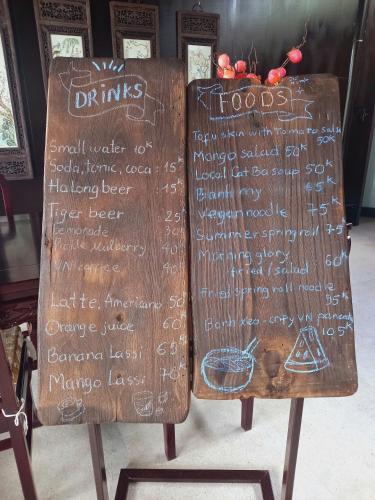 DRINKS
Small water 10K
Soda, tonic, coca : 15K
Halong beer : 15K
Tiger beer 25K
Lemonade 30K
Pickle Mulberry 40K
VN coffee 40K
Latte, Americano 50K
Orange juice 60K
Banana Lassi 65K
Mango Lassi 70K
FOODS
Tofu skin with Tomato salsa
50K
Mango salad 50K
Local Cat Ba soup 50K
Bánh my 65K
Vegan noodle 75K
Summer spring roll 75K
Morning glory
fried / salad 60K
Fried spring roll noodle
95K
Banh xeo - crispy VN pancake
105K